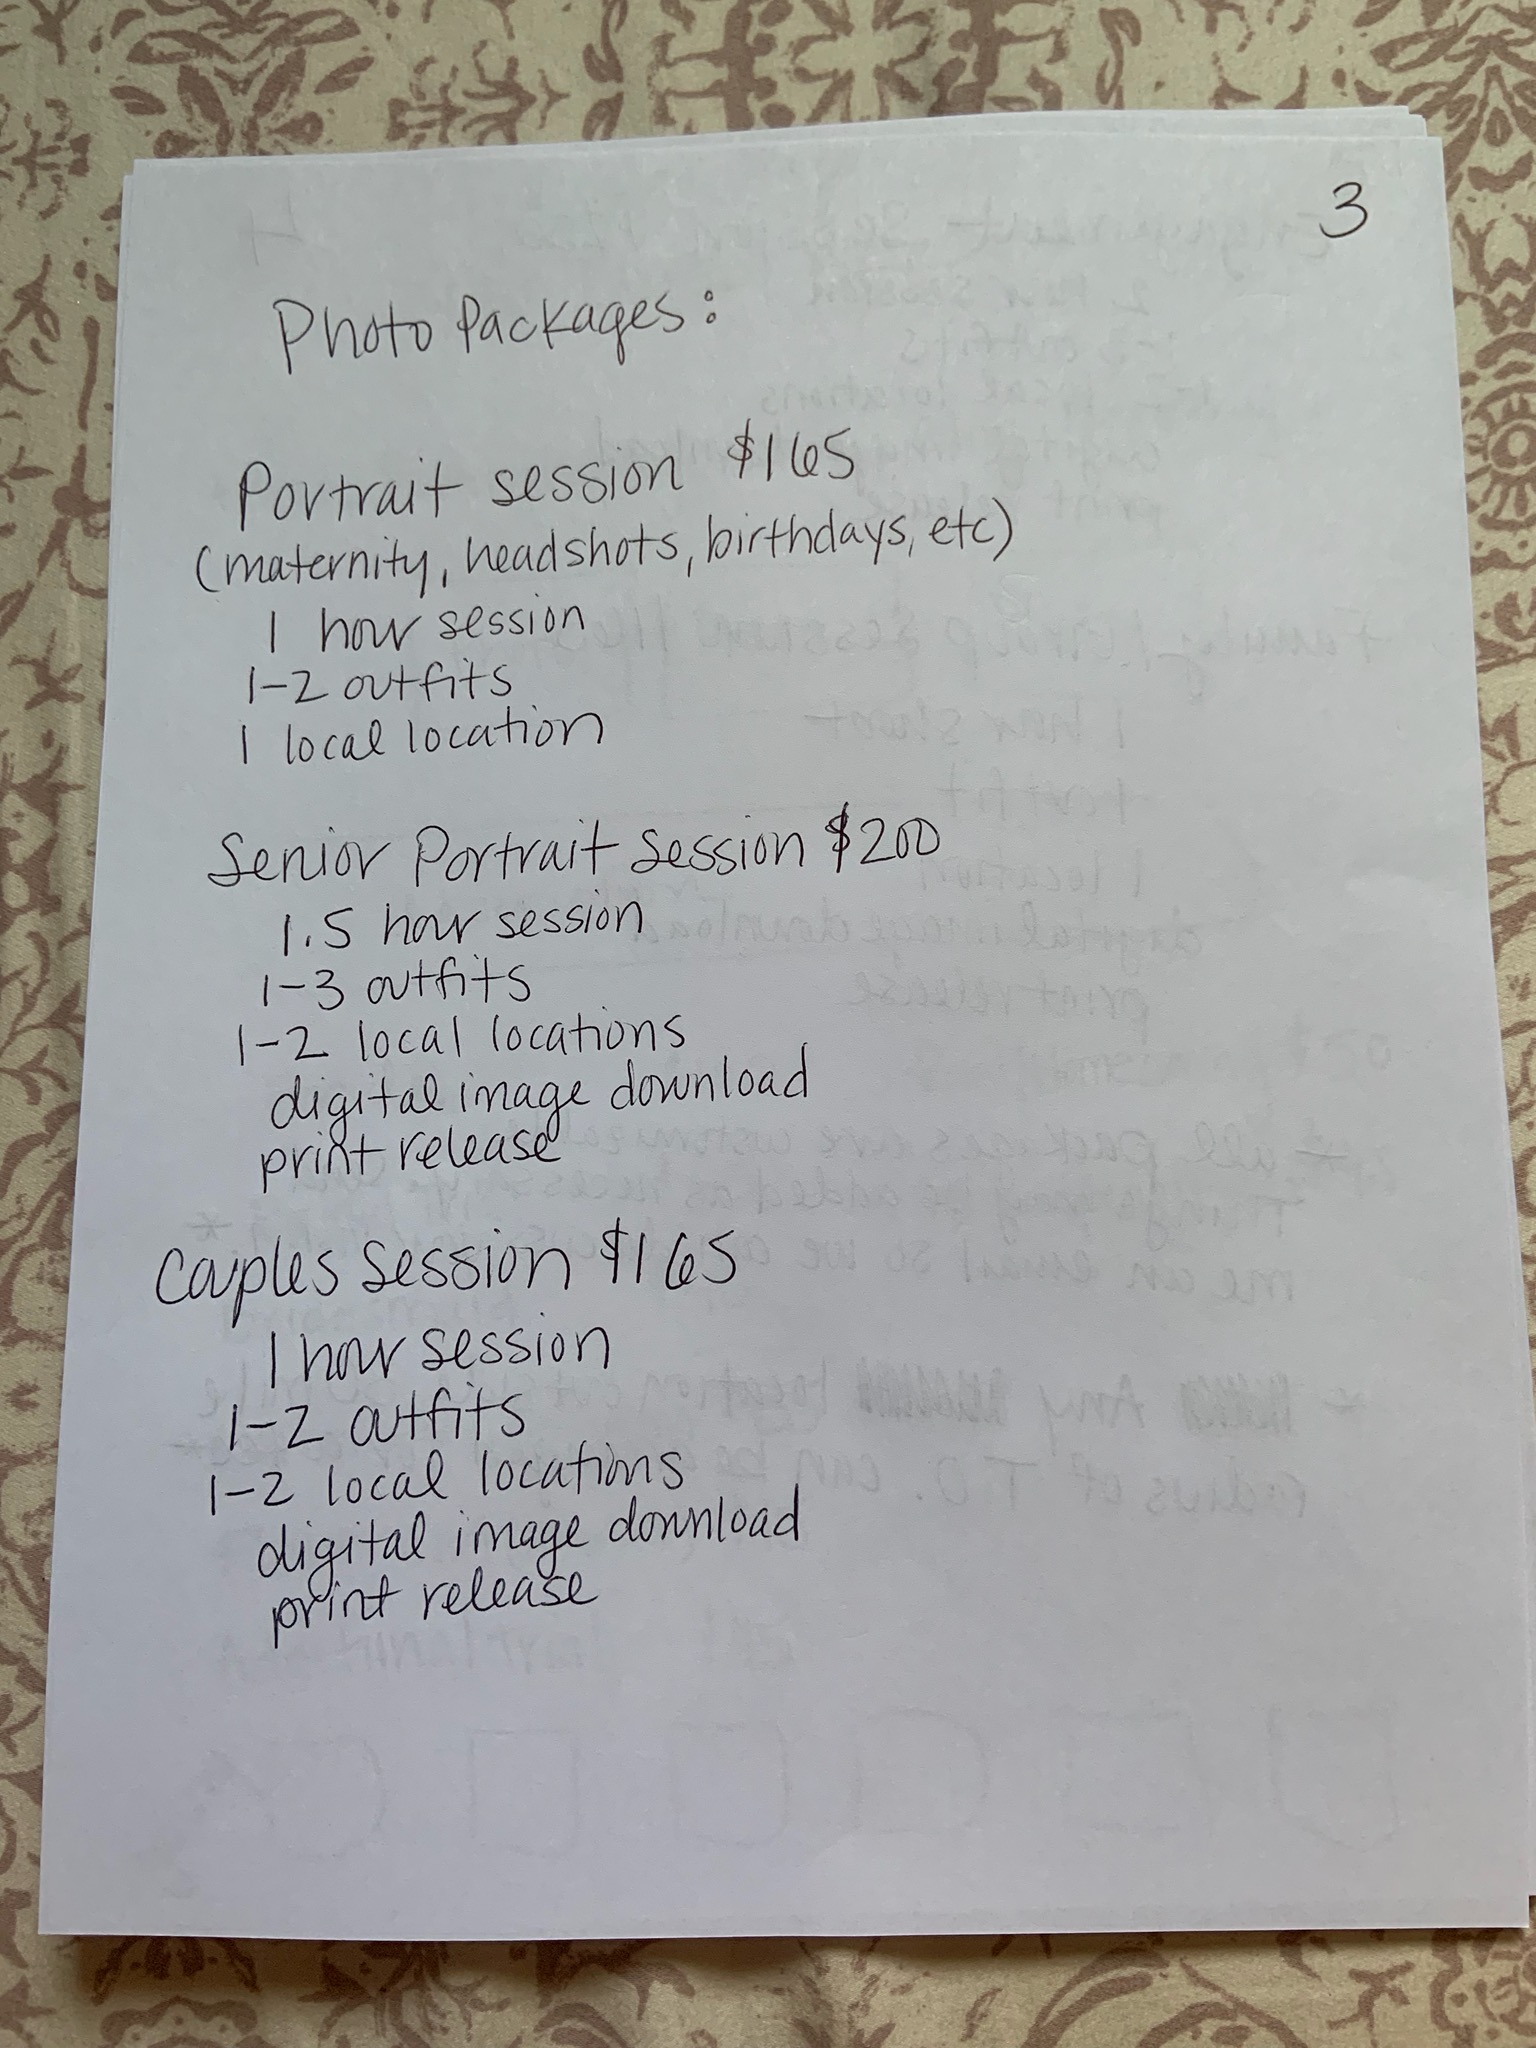 3
Photo Packages:
Portrait session $165
(maternity, headshots, birthdays, etc)
1 hour session
1-2 outfits
1 local location
Senior Portrait Session $200
1.5 hour session
1-3 outfits
1-2 local locations
digital image download
print release
Couples Session $165
1 hour session
1-2 outfits
1-2 local locations
digital image download
print release